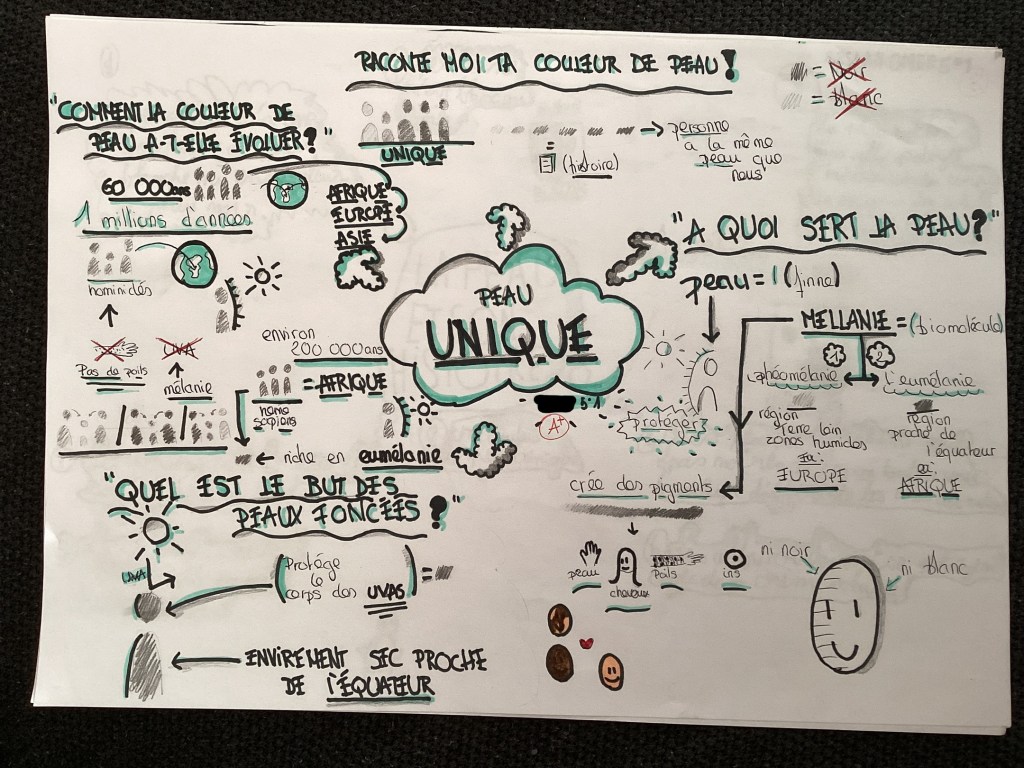 RACONTE MOI TA COULEUR DE PEAU !
= Noir
= blanc
UNIQUE
=
(histoire)
personne
a la même
peau que
nous
"COMMENT LA COULEUR DE
PEAU A-T-ELLE ÉVOLUER ?"
60 000ans
AFRIQUE
EUROPE
ASIE
1 millions d'années
hominidés
Pas de poils
UVA
mélanie
environ
200 000ans
= AFRIQUE
homo
sapiens
riche en eumélanie
PEAU
UNIQUE
5.1
A+
"A QUOI SERT LA PEAU ?"
peau = 1 (finne)
protéger
MELLANIE = (biomolécule)
1
2
phéomélanie
l'eumélanie
région
terre loin
zones humides
EUROPE
région
proche de
l'équateur
AFRIQUE
crée des pigments
peau
cheveux
Poils
iris
ni noir
ni blanc
"QUEL EST LE BUT DES
PEAUX FONCÉES ?"
UVA
(Protége
le
corps des UVAS) =
ENVIREMENT SEC PROCHE
DE l'ÉQUATEUR